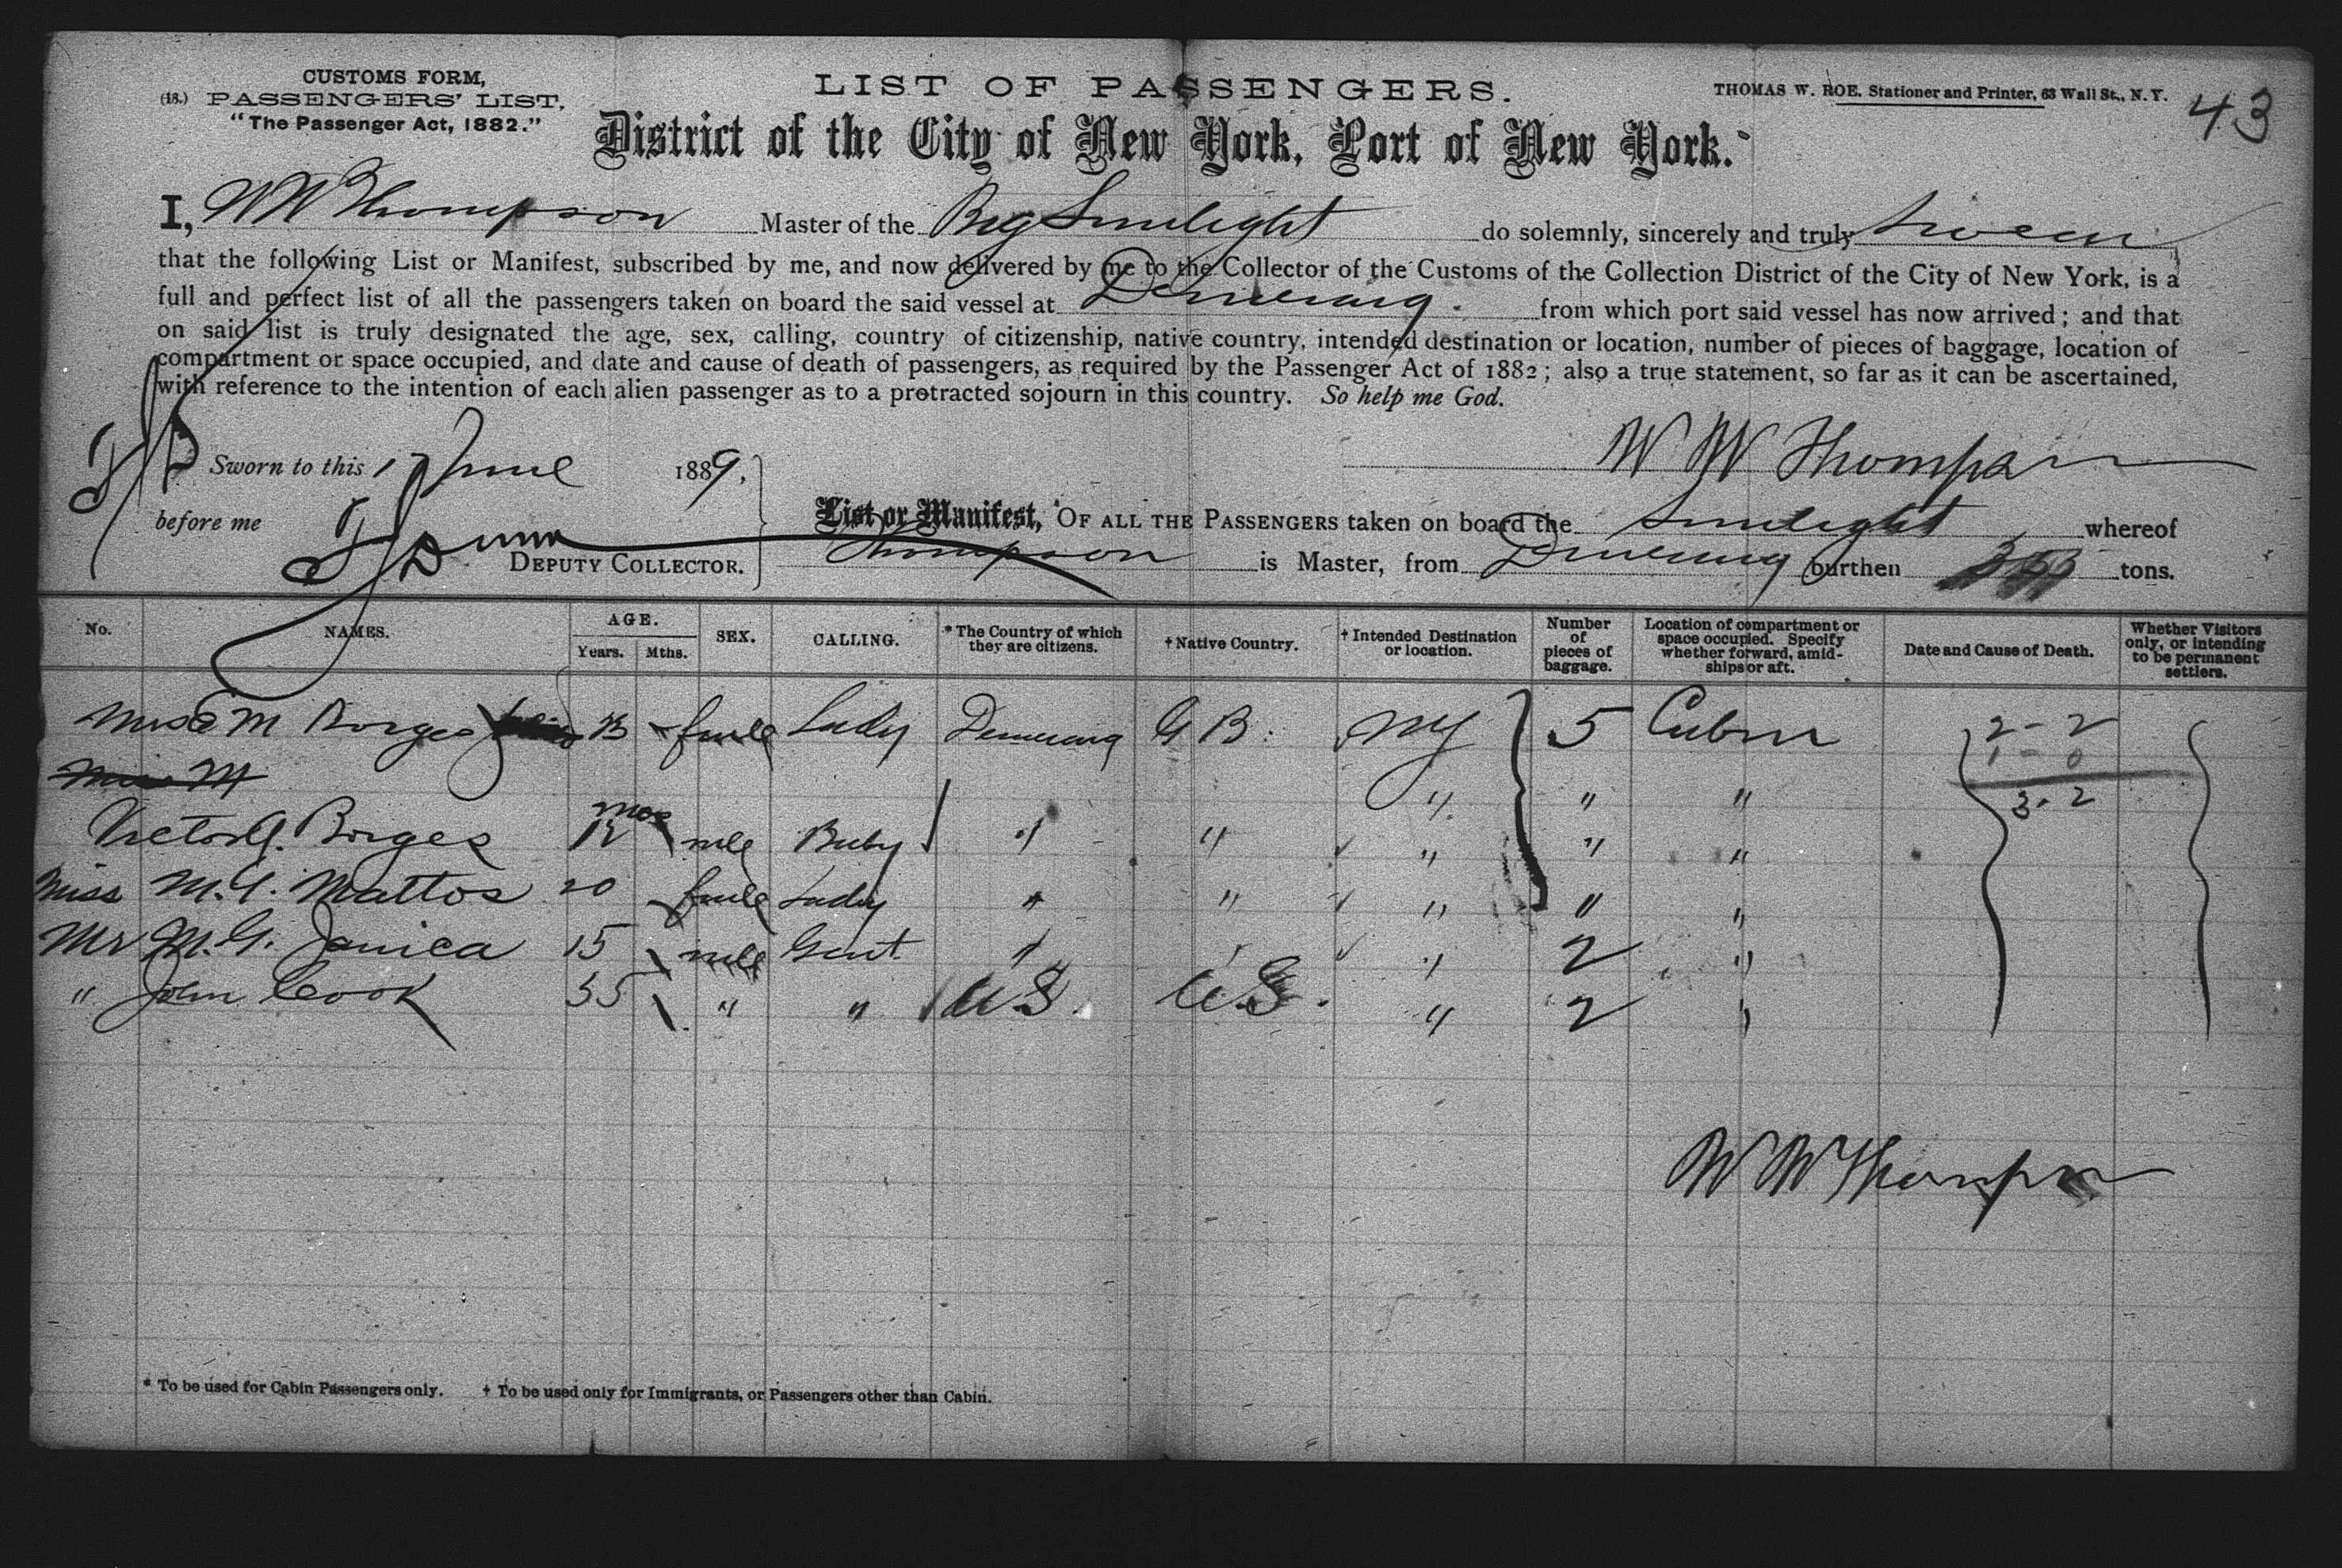 CUSTOMS FORM,
(18.) PASSENGERS' LIST,
"The Passenger Act, 1882."
LIST OF PASSENGERS.
THOMAS W. ROE. Stationer and Printer, 63 Wall St., N. Y.
43
District of the City of New York, Port of New York.
I, W W Thompson Master of the Brig Sunlight do solemnly, sincerely and truly swear
that the following List or Manifest, subscribed by me, and now delivered by me to the Collector of the Customs of the Collection District of the City of New York, is a
full and perfect list of all the passengers taken on board the said vessel at Demerara from which port said vessel has now arrived; and that
on said list is truly designated the age, sex, calling, country of citizenship, native country, intended destination or location, number of pieces of baggage, location of
compartment or space occupied, and date and cause of death of passengers, as required by the Passenger Act of 1882; also a true statement, so far as it can be ascertained,
with reference to the intention of each alien passenger as to a protracted sojourn in this country. So help me God.
W W Thompson
Sworn to this 17 June 1889,
before me
Dunn
DEPUTY COLLECTOR.
List or Manifest, OF ALL THE PASSENGERS taken on board the Sunlight whereof
Thompson is Master, from Demerara burthen tons.
No. NAMES. AGE. Years. Mths. SEX. CALLING. * The Country of which they are citizens. † Native Country. † Intended Destination or location. Number of pieces of baggage. Location of compartment or space occupied. Specify whether forward, amid-ships or aft. Date and Cause of Death. Whether Visitors only, or intending to be permanent settlers.
M Borges fmle Lady Demerara G B. NY 5 Cabin 2-2
1-0
" " " 3-2
Victor G. Borges 12 mos mle Baby " " " " "
Miss M. G. Mattos 20 fmle Lady " " " " "
Mr M. G. Janica 15 mle Gent " " " 2 "
" John Cook 35 " " U S. U.S. " 2 "
W W Thompson
* To be used for Cabin Passengers only. † To be used only for Immigrants, or Passengers other than Cabin.